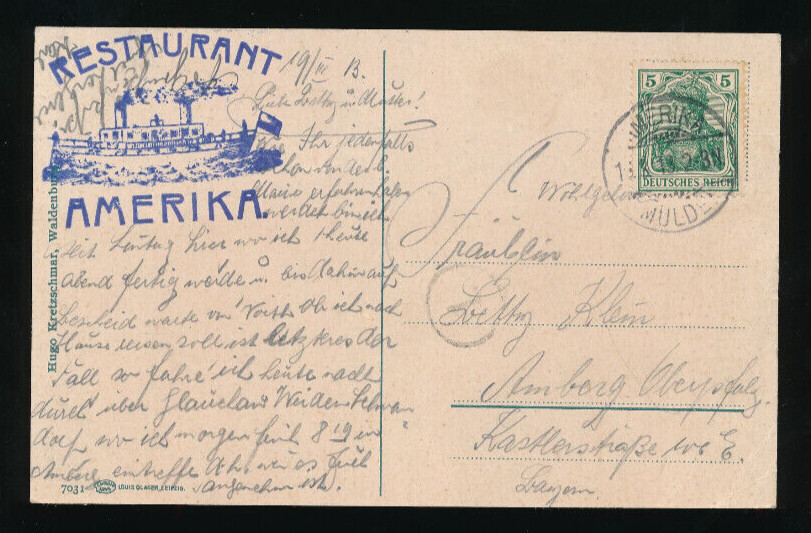 RESTAURANT
AMERIKA.
19/III 13.
Liebe Betty u. Mutter!
Wie Ihr jedenfalls
schon von der l.
Marie erfahren haben
werdet bin ich
seit hier wo ich heute
abend fertig werde u. bis dahin auf
Bescheid warte von Voith ob ich nach
Hause reisen soll ist letzteres der
Fall so fahre ich heute nacht
durch über Glauchau Weiden Schwan-
dorf, wo ich morgen früh 8 19 in
Amberg eintreffe. Ach, wie es
angenehm ist.
Hugo Kretzschmar, Waldenburg
7031
LOUIS GLASER, LEIPZIG.
5 5
DEUTSCHES REICH
AMERIKA
MULDE
Wohlgeb.
Fräulein
Betty Klein
Amberg Oberpfalz.
Kastlerstraße
Bayern.